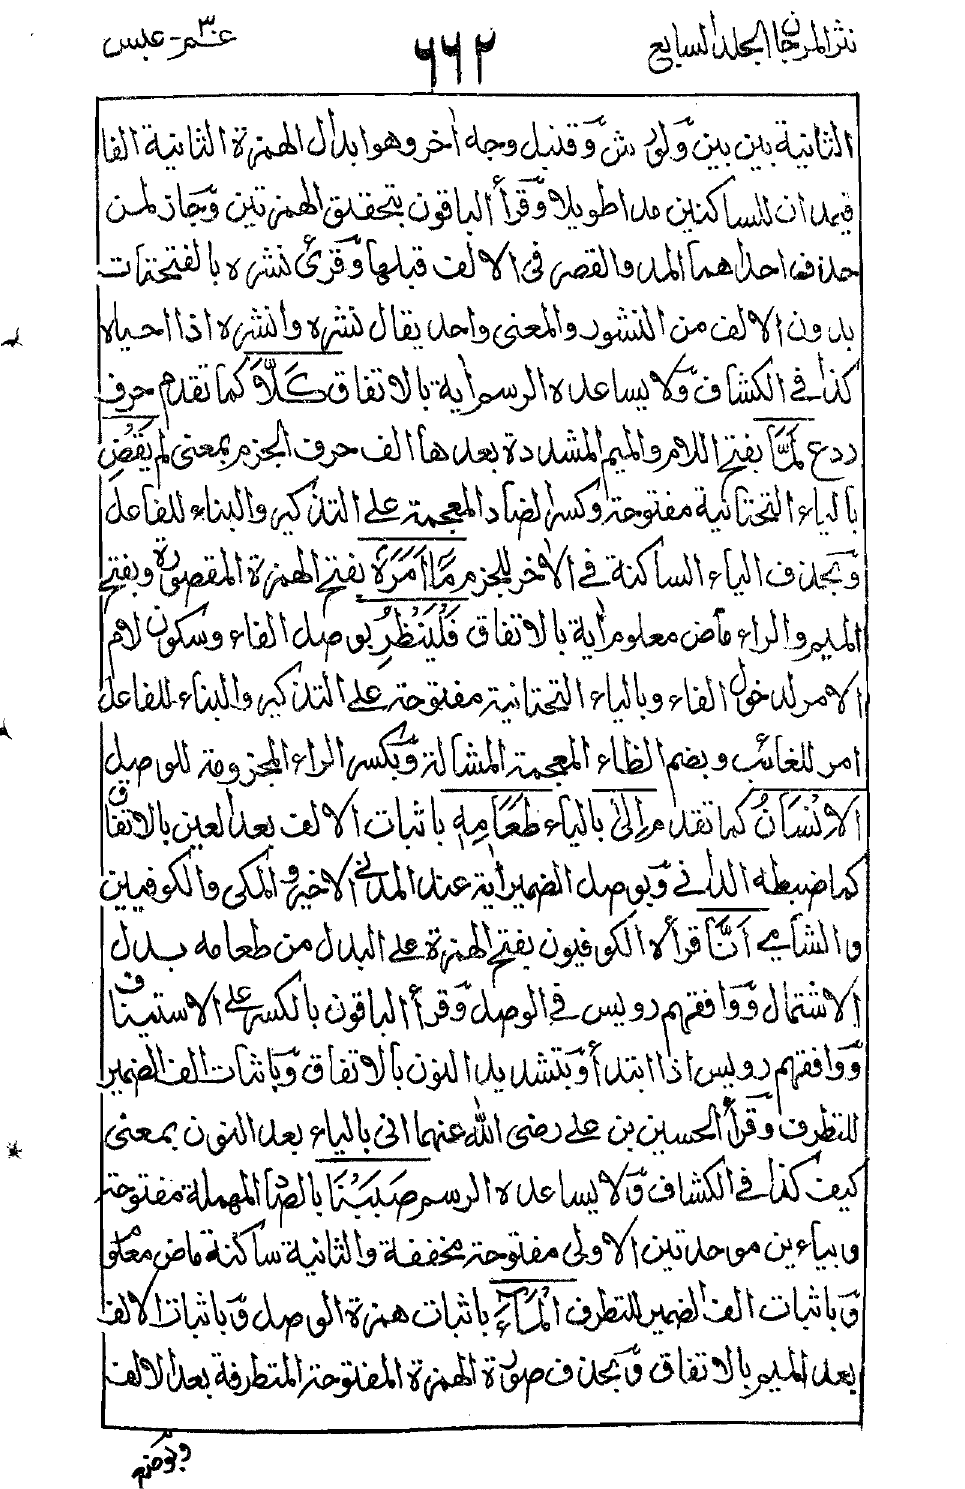 نثر المرجان الجلد السابع
٦٦٢
عم ٣٠ - عبس
الثانية بين بين ولورش وقنبل وجه اخر وهو ابدال الهمزة الثانية الفا
فيمدان للساكنين مدا طويلا وقرأ الباقون بتحقيق الهمزتين وجاز لمن
حذف احداهما المد والقصر فى الالف قبلها وقرئ نشره بالفتحات
بدون الالف من النشور والمعنى واحد يقال نشره وانشره اذا احياه
كذا في الكشاف ولا يساعده الرسم اية بالاتفاق كَلَّا كما تقدم حرف
ردع لَمَّا بفتح اللام والميم المشددة بعدها الف حرف الجزم بمعنى لم يَقْضِ
بالياء التحتانية مفتوحة وكسر الضاد المعجمة على التذكير والبناء للفاعل
وبحذف الياء الساكنة في الاخر للجزم مَا اَمَرَهٗ بفتح الهمزة المقصورة وبفتح
الميم والراء ماض معلوم اية بالاتفاق فَلْيَنْظُرِ بوصل الفاء وسكون لام
الامر لدخول الفاء وبالياء التحتانية مفتوحة على التذكير والبناء للفاعل
امر للغائب وبضم الظاء المعجمة المشالة وبكسر الراء المجزومة للوصل
الْاِنْسَانُ كما تقدم اِلىٰ بالياء طَعَامِهٖ باثبات الالف بعد العين بالاتفاق
كما ضبطه الداني وبوصل الضمير اية عند المدني الاخير والمكى والكوفيين
والشامي اَنَّا قرأه الكوفيون بفتح الهمزة على البدل من طعامه بدل
الاشتمال ووافقهم رويس في الوصل وقرأ الباقون بالكسر على الاستيناف
ووافقهم رويس اذا ابتدأ وبتشديد النون بالاتفاق وباثبات الف الضمير
للتطرف وقرأ الحسين بن على رضى الله عنهما انى بالياء بعد النون بمعنى
كيف كذا في الكشاف ولا يساعده الرسم صَبَبْنَا بالصاد المهملة مفتوحة
وبباءين موحدتين الاولى مفتوحة مخففة والثانية ساكنة ماض معلوم
وباثبات الف الضمير للتطرف الْمَآءَ باثبات همزة الوصل وباثبات الالف
بعد الميم بالاتفاق وبحذف صورة الهمزة المفتوحة المتطرفة بعد الالف